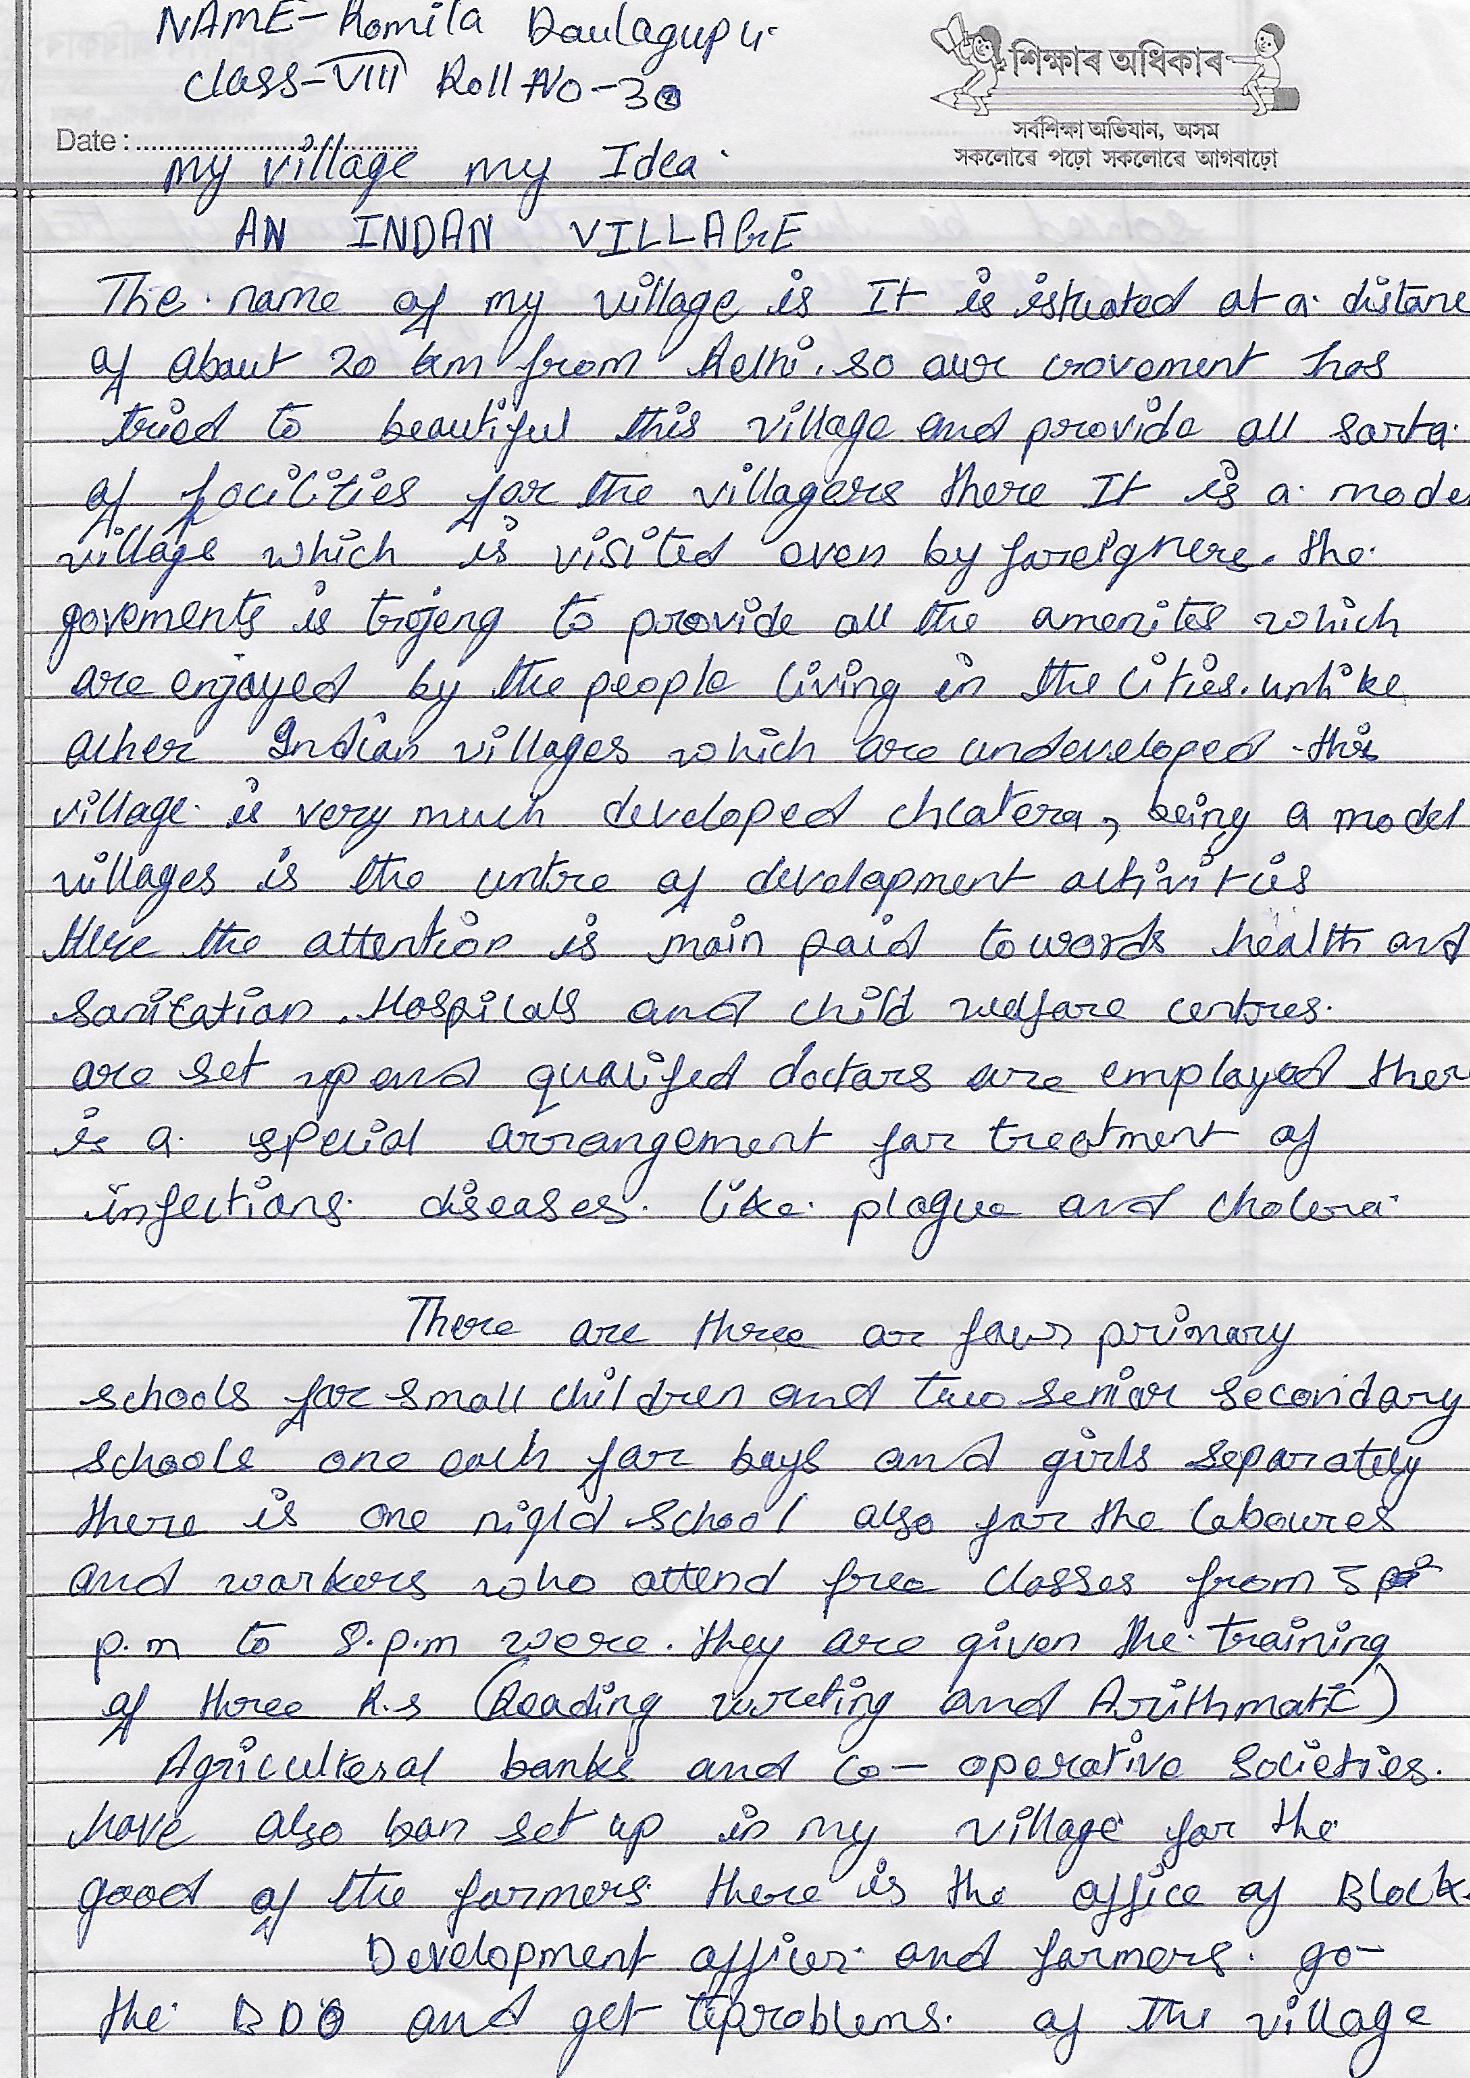 NAME-Romila Daulagupu.
class-VIII Roll No-30
শিক্ষাৰ অধিকাৰ
সৰ্বশিক্ষা অভিযান, অসম
সকলোৱে পঢ়ো সকলোৱে আগবাঢ়ো
Date :
my village my Idea.
AN INDAN VILLAGE
The name of my village is It is istuated at a distane
of about 20 km from Delhi. so our crovement has
tried to beautiful this village and provide all sorta
of facilities for the villagers there It is a mode
village which is visited even by foreigners. the
govements is trojeng to provide all the amenites which
are enjoyed by the people living in the cities. unlike
other Indian villages which are undeveloped this
village is very much developed chcatera, being a model
villages is the centre of development activities
Here the attention is main paid towards health and
sanitation. Hospitals and child welfare centres.
are set up and qualifed doctors are employed ther
is a special arrangement for treatment of
infections diseases. like plague and cholera.
There are three or four primary
schools for small children and two senior secondary
schools one each for boys and girls separately
there is one night school also for the laboures
and workers who attend free classes from 5
p.m to 8.p.m were. they are given the training
of three R.s (Reading wreting and Arithmatic)
Agricultesal banks and co- operative societies.
have also ban set up in my village for the
good of the farmers there is the office of Block
Development officer and farmers. go-
the BDO and get teproblems. of the village